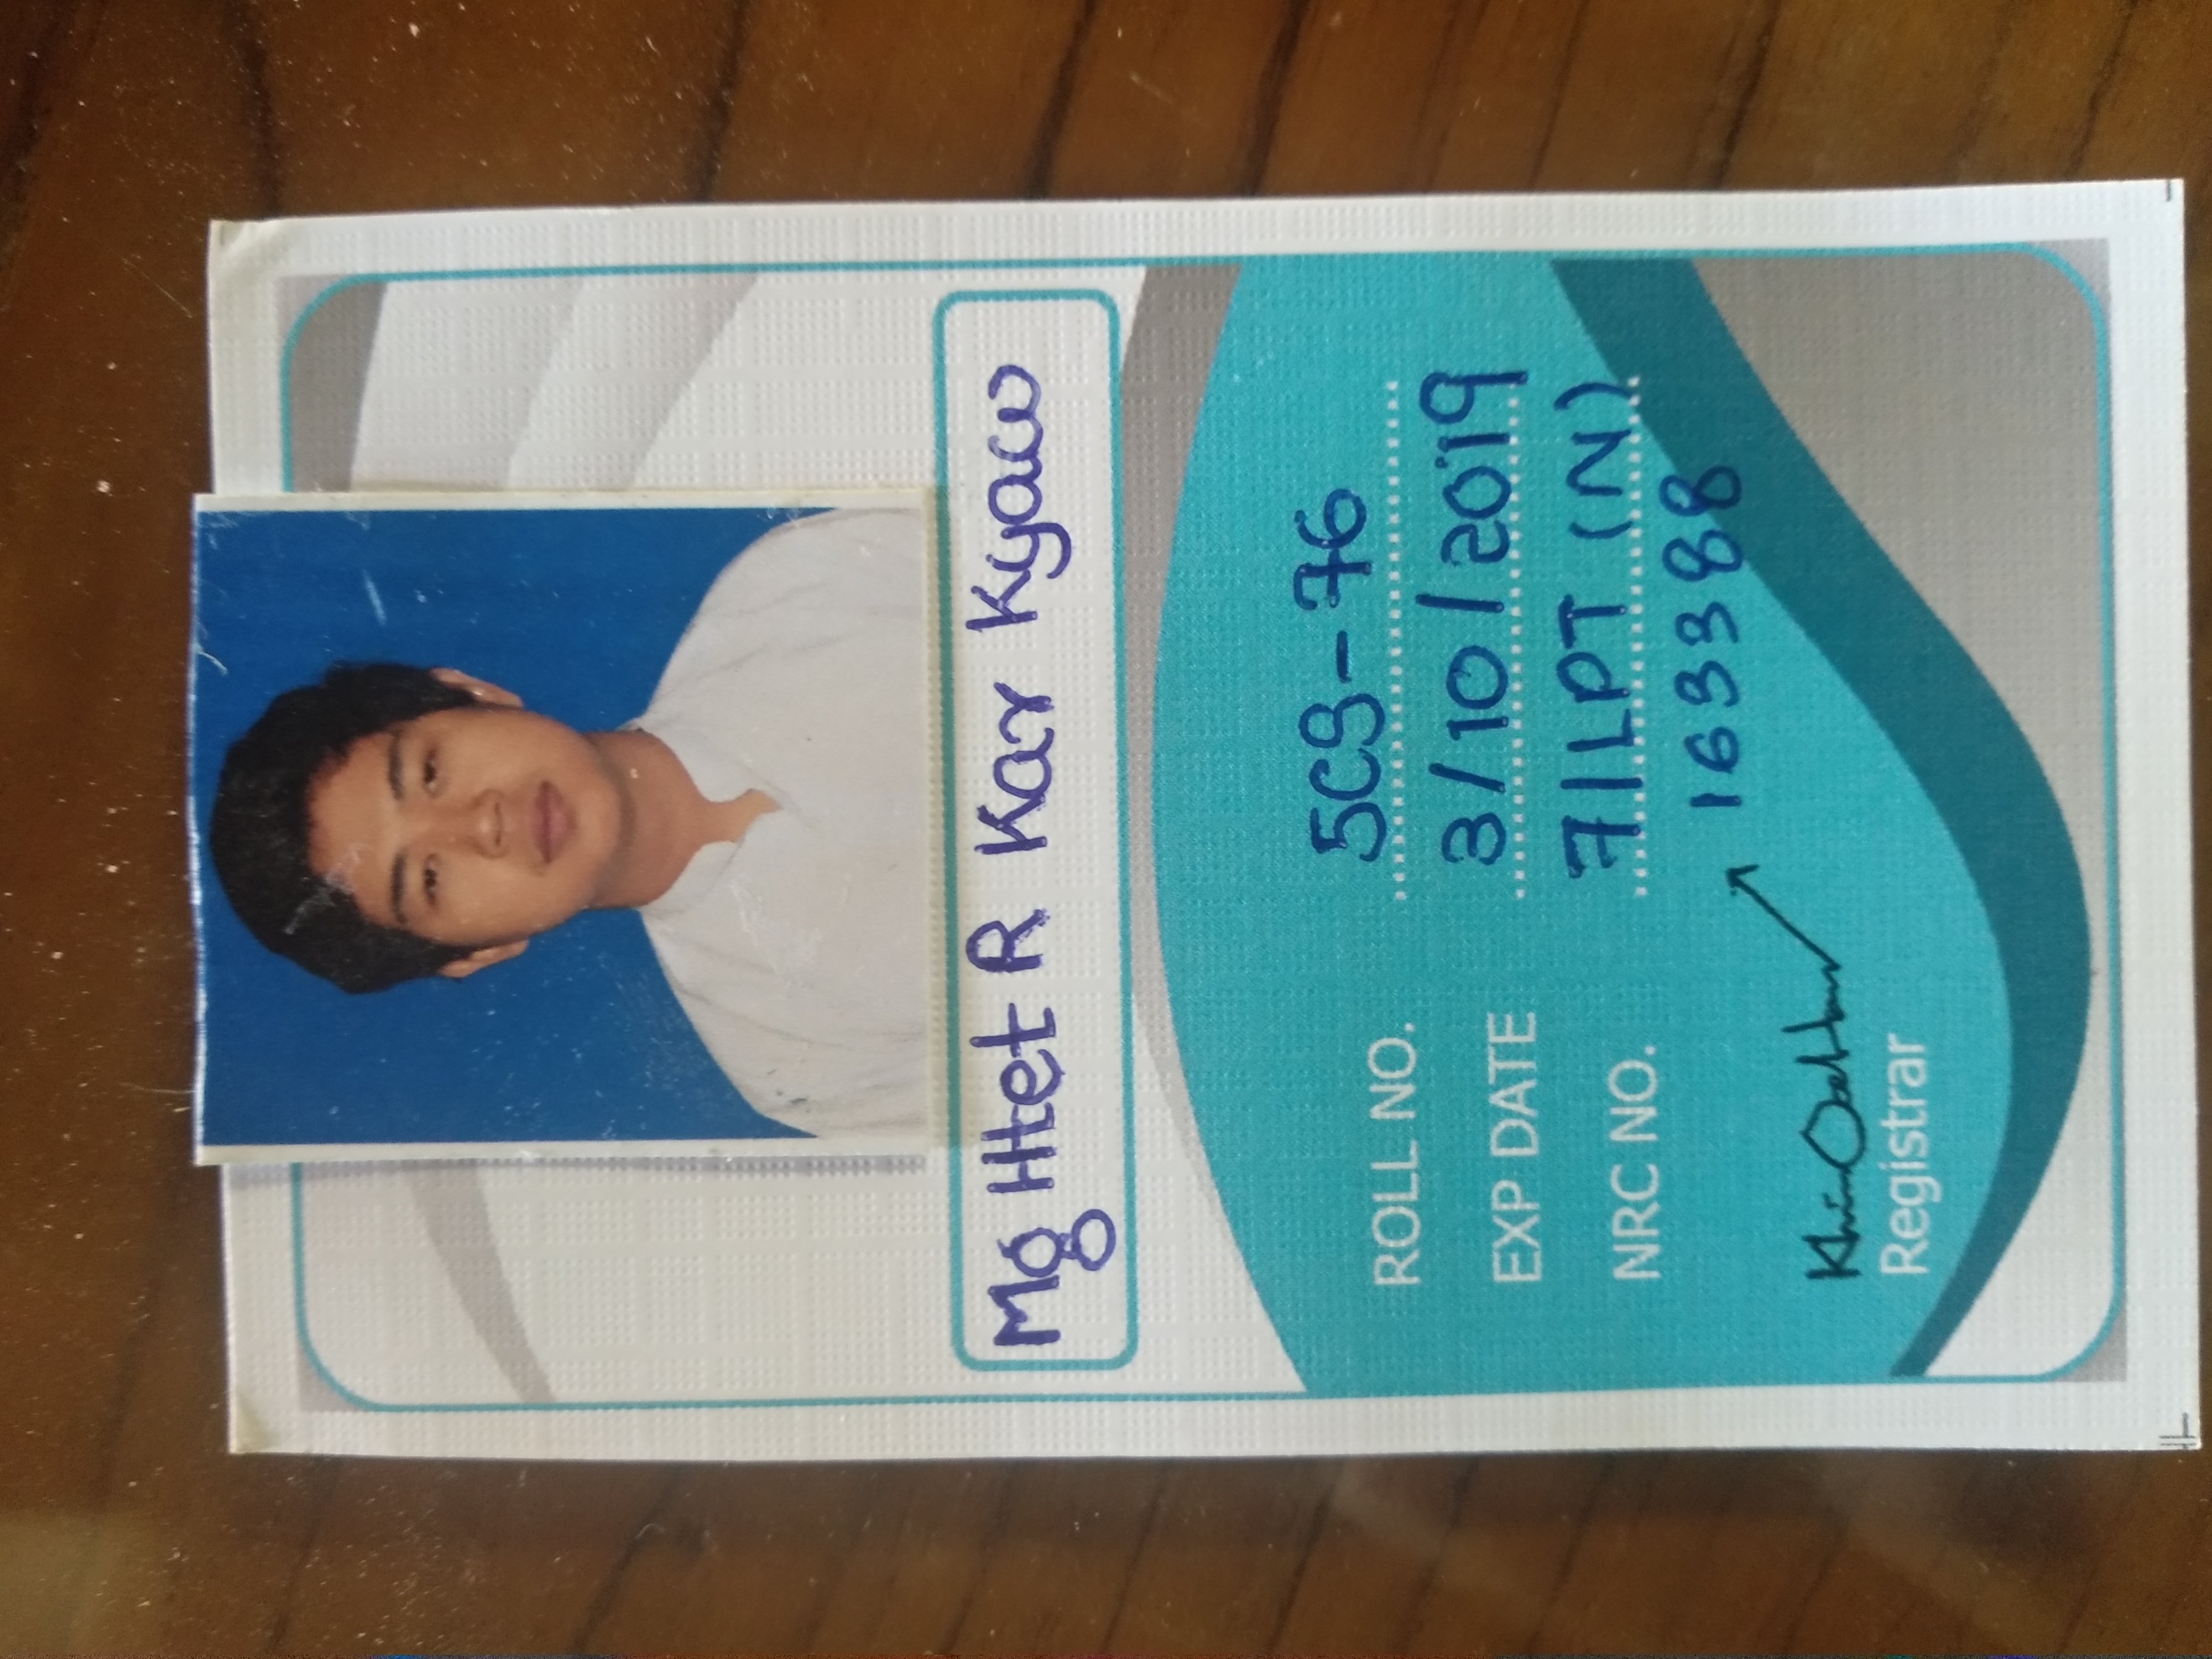 Mg Htet R Kar Kyaw
ROLL NO. 5CS-76
EXP DATE 3/10/2019
NRC NO. 7/LPT (N)
163388
Registrar